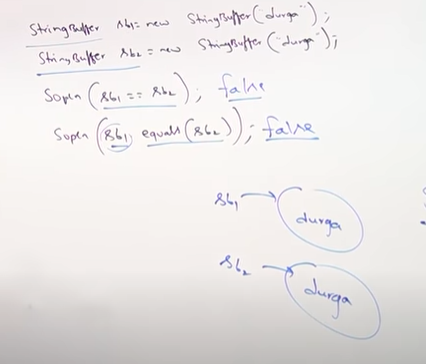 StringBuffer sb1 = new StringBuffer("durga");
StringBuffer sb2 = new StringBuffer("durga");
Sopln(sb1 == sb2); false
Sopln(sb1 equals(sb2)); false
sb1 durga
sb2 durga